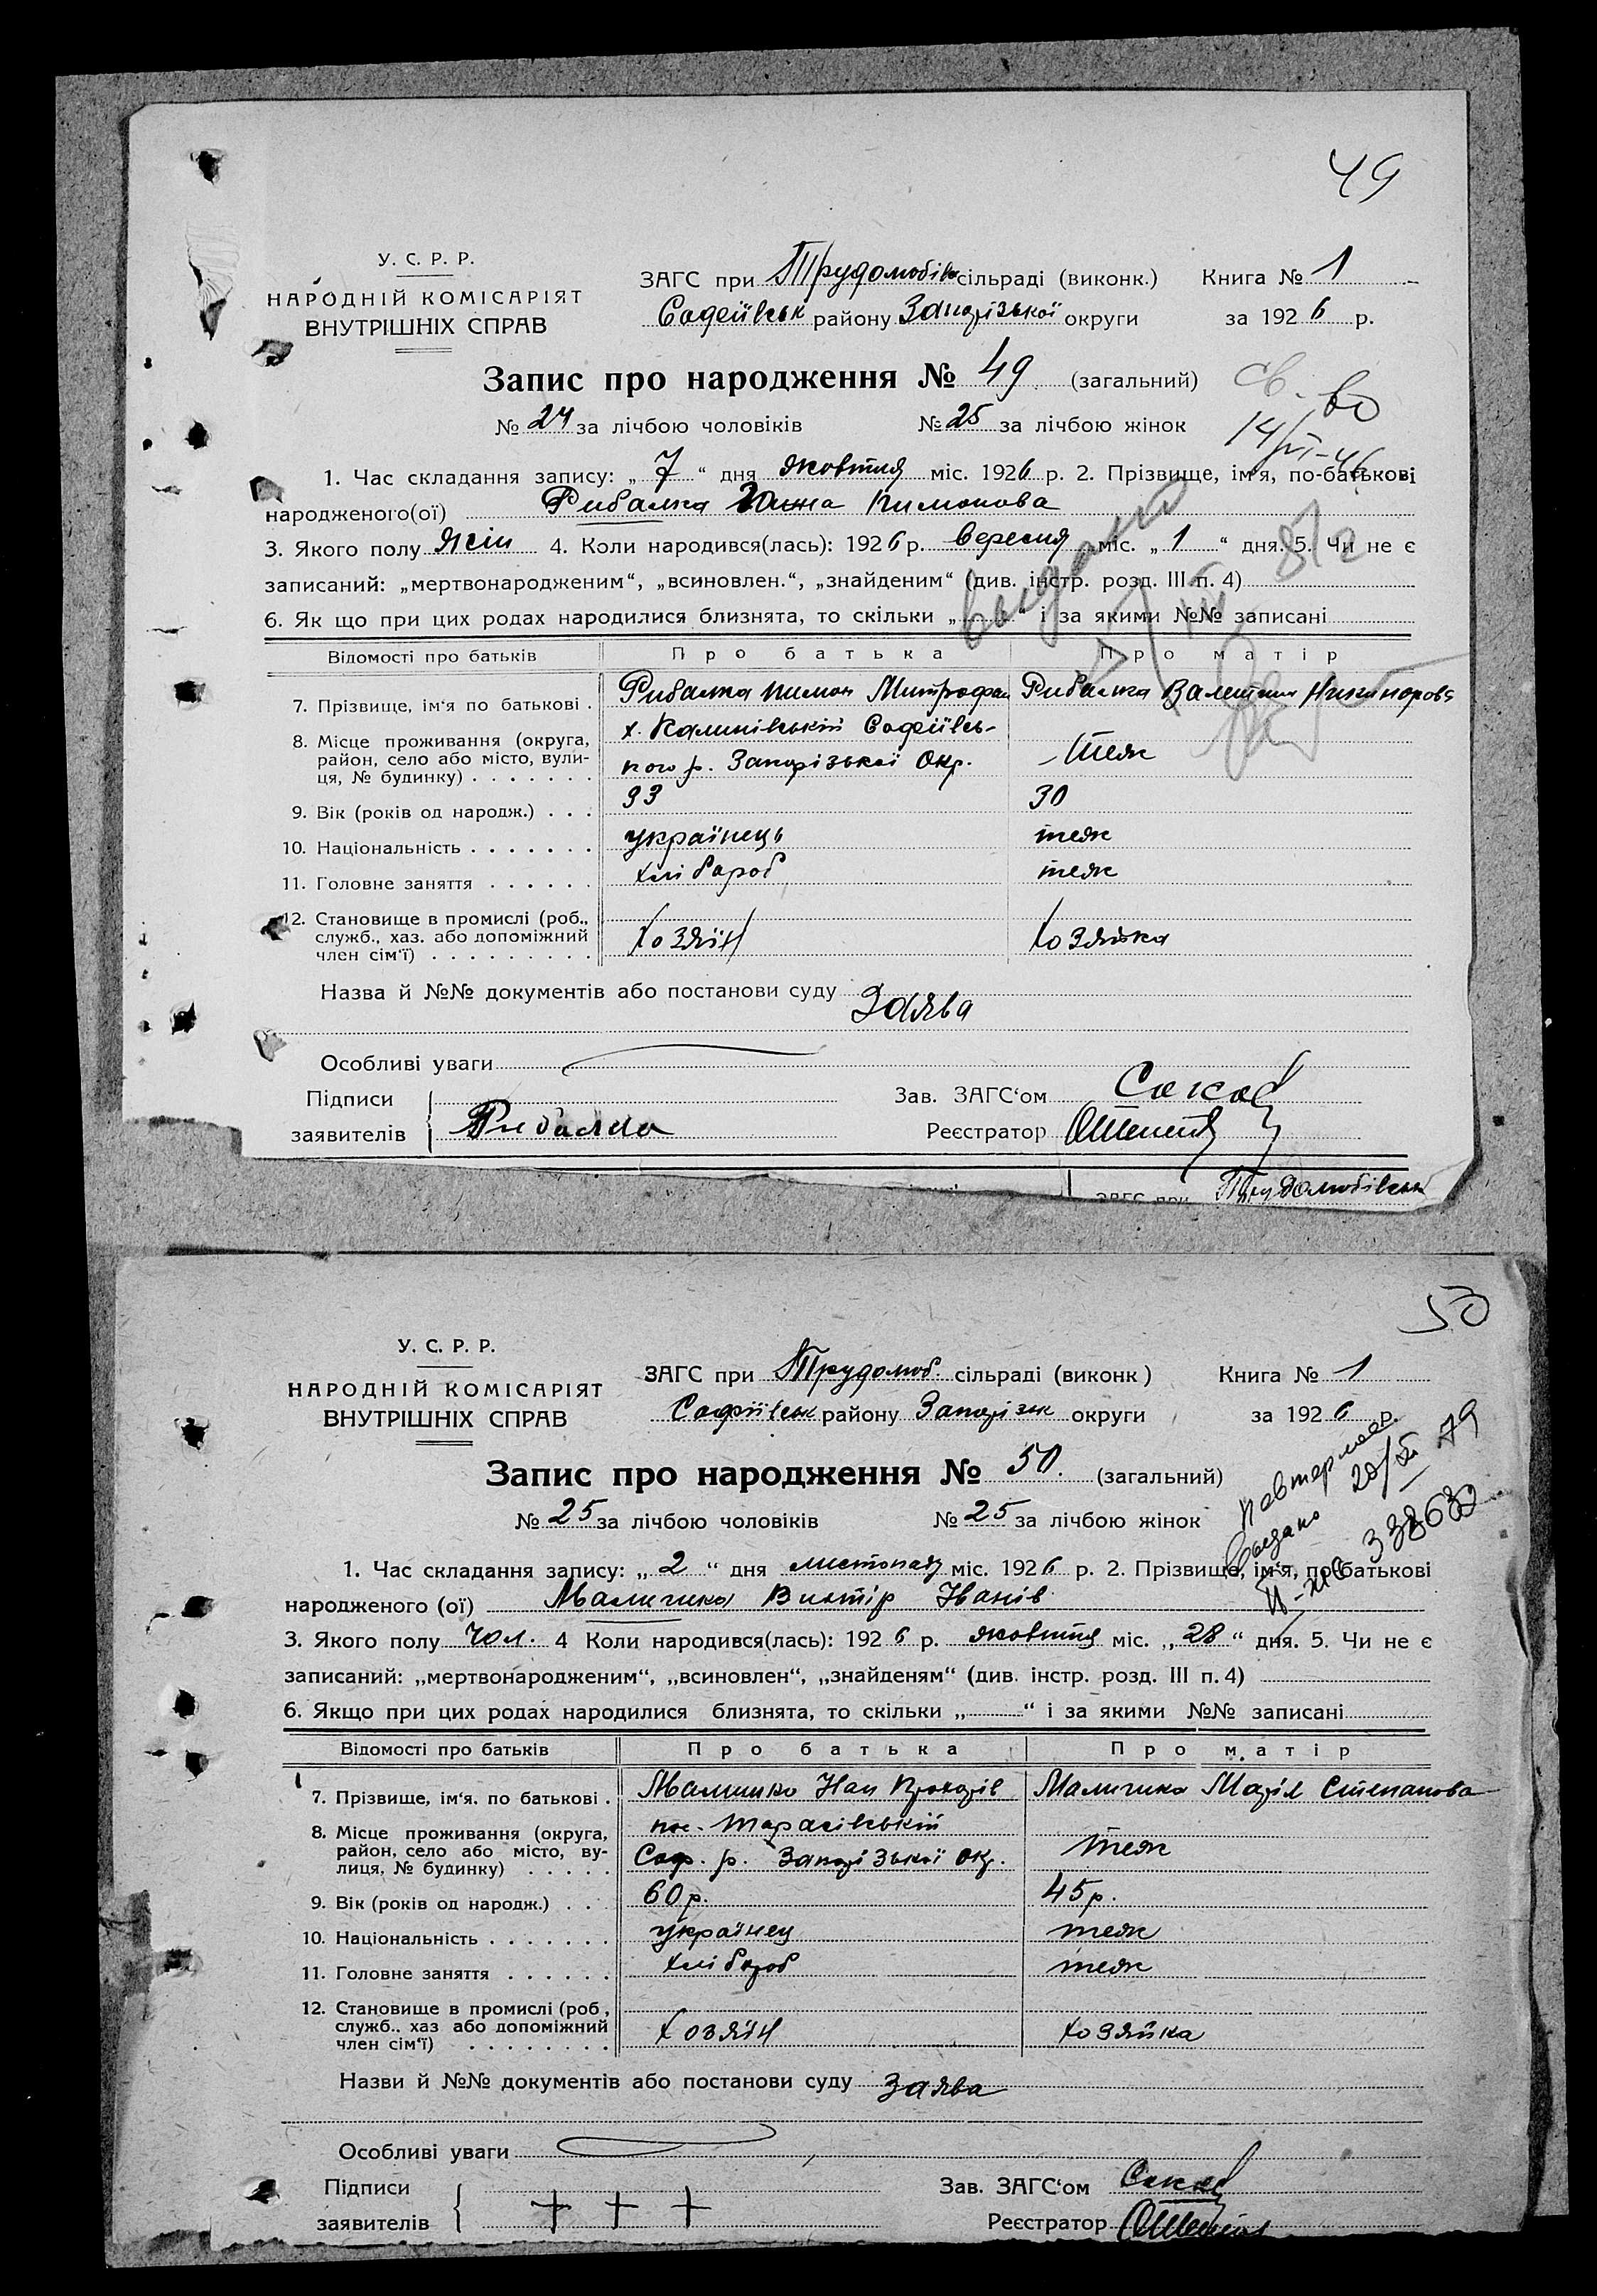 49
У. С. Р. Р.
НАРОДНІЙ КОМІСАРІЯТ
ВНУТРІШНІХ СПРАВ
ЗАГС при Трудолюбів сільраді (виконк.) Книга № 1
Софіївськ району Запорізької округи за 1926 р.
Запис про народження № 49 (загальний)
№ 24 за лічбою чоловіків № 25 за лічбою жінок
св-во
14/VI-46
1. Час складання запису: „ 7 “ дня жовтня міс. 1926 р. 2. Прізвище, ім'я, по-батькові
народженого(ої) Рибалка Пимонова
3. Якого полу жін 4. Коли народився(лась): 1926 р. вересня міс. „ 1 “ дня. 5. Чи не є
записаний: „мертвонародженим“, „всиновлен.“, „знайденим“ (див. інстр. розд. III п. 4)
6. Як що при цих родах народилися близнята, то скільки „ “ і за якими №№ записані
выдано
Відомості про батьків Про батька Про матір
7. Прізвище, ім'я по батькові . Рибалка Пимон Митрофан Рибалка Валентина Никифорова
8. Місце проживання (округа, район, село або місто, вулиця, № будинку) х. Калинівський Софіївського р. Запорізької Окр. теж
9. Вік (років од народж.) . . . 33 30
10. Національність . . . . . . . українець теж
11. Головне заняття . . . . . . хлібороб теж
12. Становище в промислі (роб., служб., хаз. або допоміжний член сім'ї) . . . . . . . . . хозяїн хозяйка
Назва й №№ документів або постанови суду Заява
Особливі уваги
Підписи заявителів Рибалка
Зав. ЗАГС'ом
Реєстратор
ЗАГС при Трудолюбівськ
50
У. С. Р. Р.
НАРОДНІЙ КОМІСАРІЯТ
ВНУТРІШНІХ СПРАВ
ЗАГС при Трудолюб. сільраді (виконк) Книга № 1
Софіївськ району Запорізьк округи за 1926 р.
Запис про народження № 50. (загальний)
№ 25 за лічбою чоловіків № 25 за лічбою жінок
Выдано повторное
79
338632
1. Час складання запису: „ 2 “ дня листопаду міс. 1926 р. 2. Прізвище, ім'я, по-батькові
народженого (ої) Маличко Виктір Іванів
3. Якого полу чол. 4 Коли народився(лась): 1926 р. жовтня міс. „ 28 “ дня. 5. Чи не є
записаний: „мертвонародженим“, „всиновлен“, „знайденям“ (див. інстр. розд. III п. 4)
6. Якщо при цих родах народилися близнята, то скільки „ “ і за якими №№ записані
Відомості про батьків Про батька Про матір
7. Прізвище, ім'я. по батькові . Маличко Іван Маличко Марія Степанова
8. Місце проживання (округа, район, село або місто, вулиця, № будинку) . . . . . пос. Тарасівський Соф. р. Запорізької окр. теж
9. Вік (років од народж.) . . . 60 р. 45 р.
10. Національність . . . . . . . українец теж
11. Головне заняття . . . . . . хлібороб теж
12. Становище в промислі (роб, служб.. хаз або допоміжний член сім'ї) . . . . . . . . хозяїн хозяйка
Назви й №№ документів або постанови суду Заява
Особливі уваги
Підписи заявителів + + +
Зав. ЗАГС'ом
Реєстратор